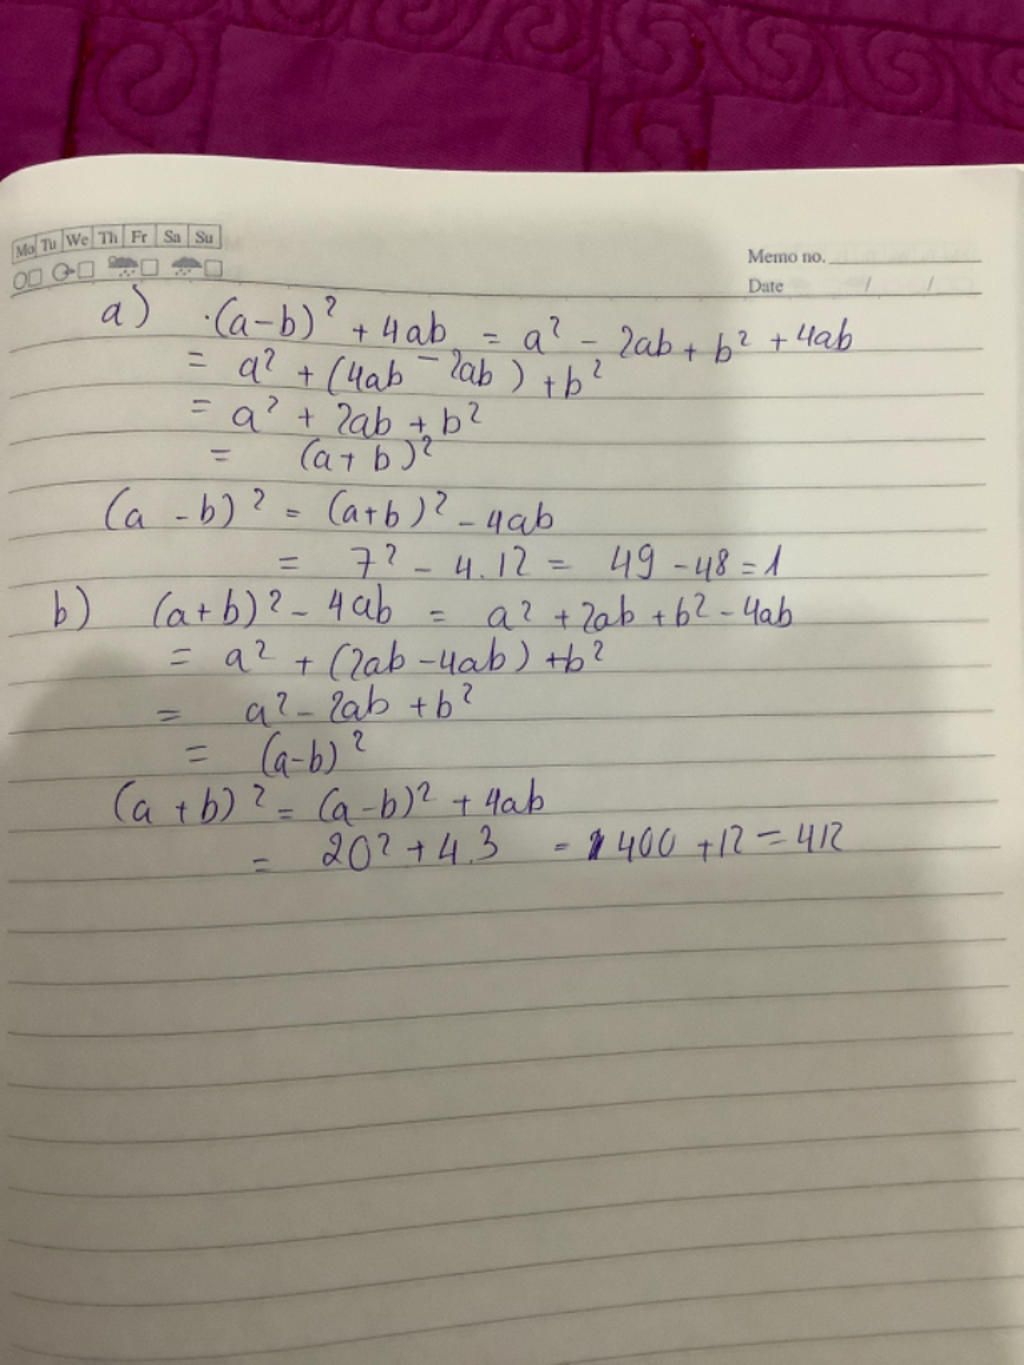 Mo Tu We Th Fr Sa Su
Memo no.
Date / /
a) .(a-b)² + 4ab = a² - 2ab + b² + 4ab
= a² + (4ab - 2ab) + b²
= a² + 2ab + b²
= (a + b)²
(a - b)² = (a+b)² - 4ab
= 7² - 4.12 = 49 - 48 = 1
b) (a+b)² - 4ab = a² + 2ab + b² - 4ab
= a² + (2ab - 4ab) + b²
= a² - 2ab + b²
= (a-b)²
(a + b)² = (a-b)² + 4ab
= 20² + 4.3 = 400 + 12 = 412